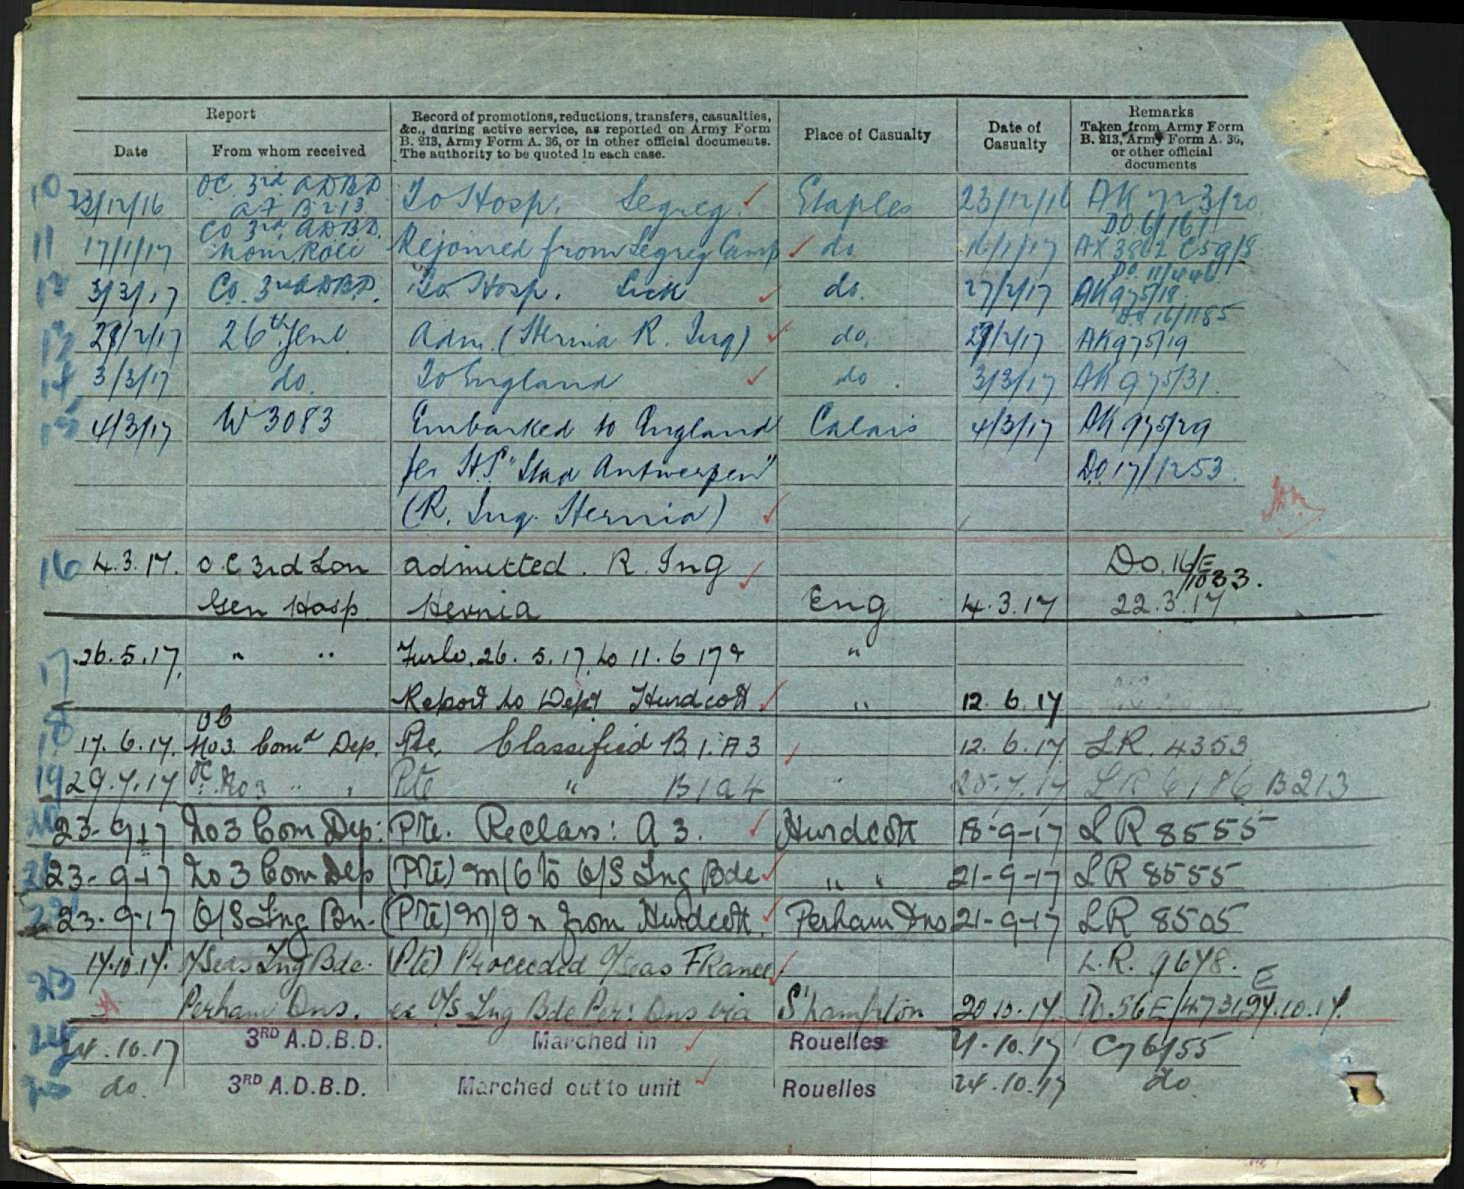 Report
Date
From whom received
Record of promotions, reductions, transfers, casualties,
&c., during active service, as reported on Army Form
B. 213, Army Form A. 36, or in other official documents.
The authority to be quoted in each case.
Place of Casualty
Date of
Casualty
Remarks
Taken from Army Form
B. 213, Army Form A. 36,
or other official
documents
10 23/12/16 OC 3rd ADBD To Hosp. Segreg. Etaples 23/12/16 AK 723/20
AF B213 DO 6/161
11 17/1/17 CO 3rd ADBD. Rejoined from Segreg Camp do 16/1/17 AX 3862 C59/8
Nom Roll DO 11/446
12 3/3/17 Co. 3rd ADBD. To Hosp. Sick do. 27/2/17 AK975/18
DO 16/1185
13 27/2/17 26th Genl. Adm. (Hernia R. Ing) do. 27/2/17 AK975/19
14 3/3/17 do. To England do. 3/3/17 AK 975/31.
15 4/3/17 W 3083 Embarked to England Calais 4/3/17 AK 975/29
per H.S. "Stad Antwerpen" D.O 17/1253.
(R. Ing. Hernia)
16 4.3.17. O.C 3rd Lon admitted. R. Ing DO. 16/E/1033.
Gen Hosp. Hernia Eng 4.3.17 22.3.17
17 26.5.17. " " Furlo. 26.5.17 to 11.6.17 & "
Report to Dept Hurdcott " 12.6.17
18 17.6.17. No3 Comd Dep. Pte. Classified B1.A3 12.6.17 LR. 4353
19 29.7.17 OC. No3 " " Pte " B1A4 " 25.7.17 LR 6186 B213
20 23-9-17 No 3 Com Dep: Pte. Reclass: A3. Hurdcott 18-9-17 LR 8555
21 23-9-17 No 3 Com Dep (Pte) M/O to O/S Tng Bde " " 21-9-17 LR 8555
22 23-9-17 O/S Tng Bn. (Pte) M/O n from Hurdcott. Perham Dns 21-9-17 LR 8505
23 17.10.17. O/Seas Tng Bde. (Pte) Proceeded O/seas France L.R. 9678.
Perham Dns. ex O/S Tng Bde Per: Dns via S'hampton 20.10.17. Do. 56E/4573 E 24.10.17.
24 24.10.17 3RD A.D.B.D. Marched in Rouelles 21.10.17 C76/55
25 do. 3RD A.D.B.D. Marched out to unit Rouelles 24.10.17 do